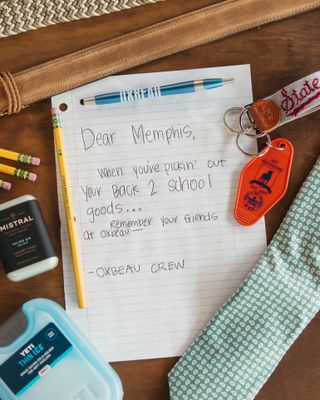 OXBEAU
Dear Memphis,
When you've pickin' out
your Back 2 school
goods...
Remember your friends
at Oxbeau
-OXBEAU CREW
State
MISTRAL
YETI
THIN ICE